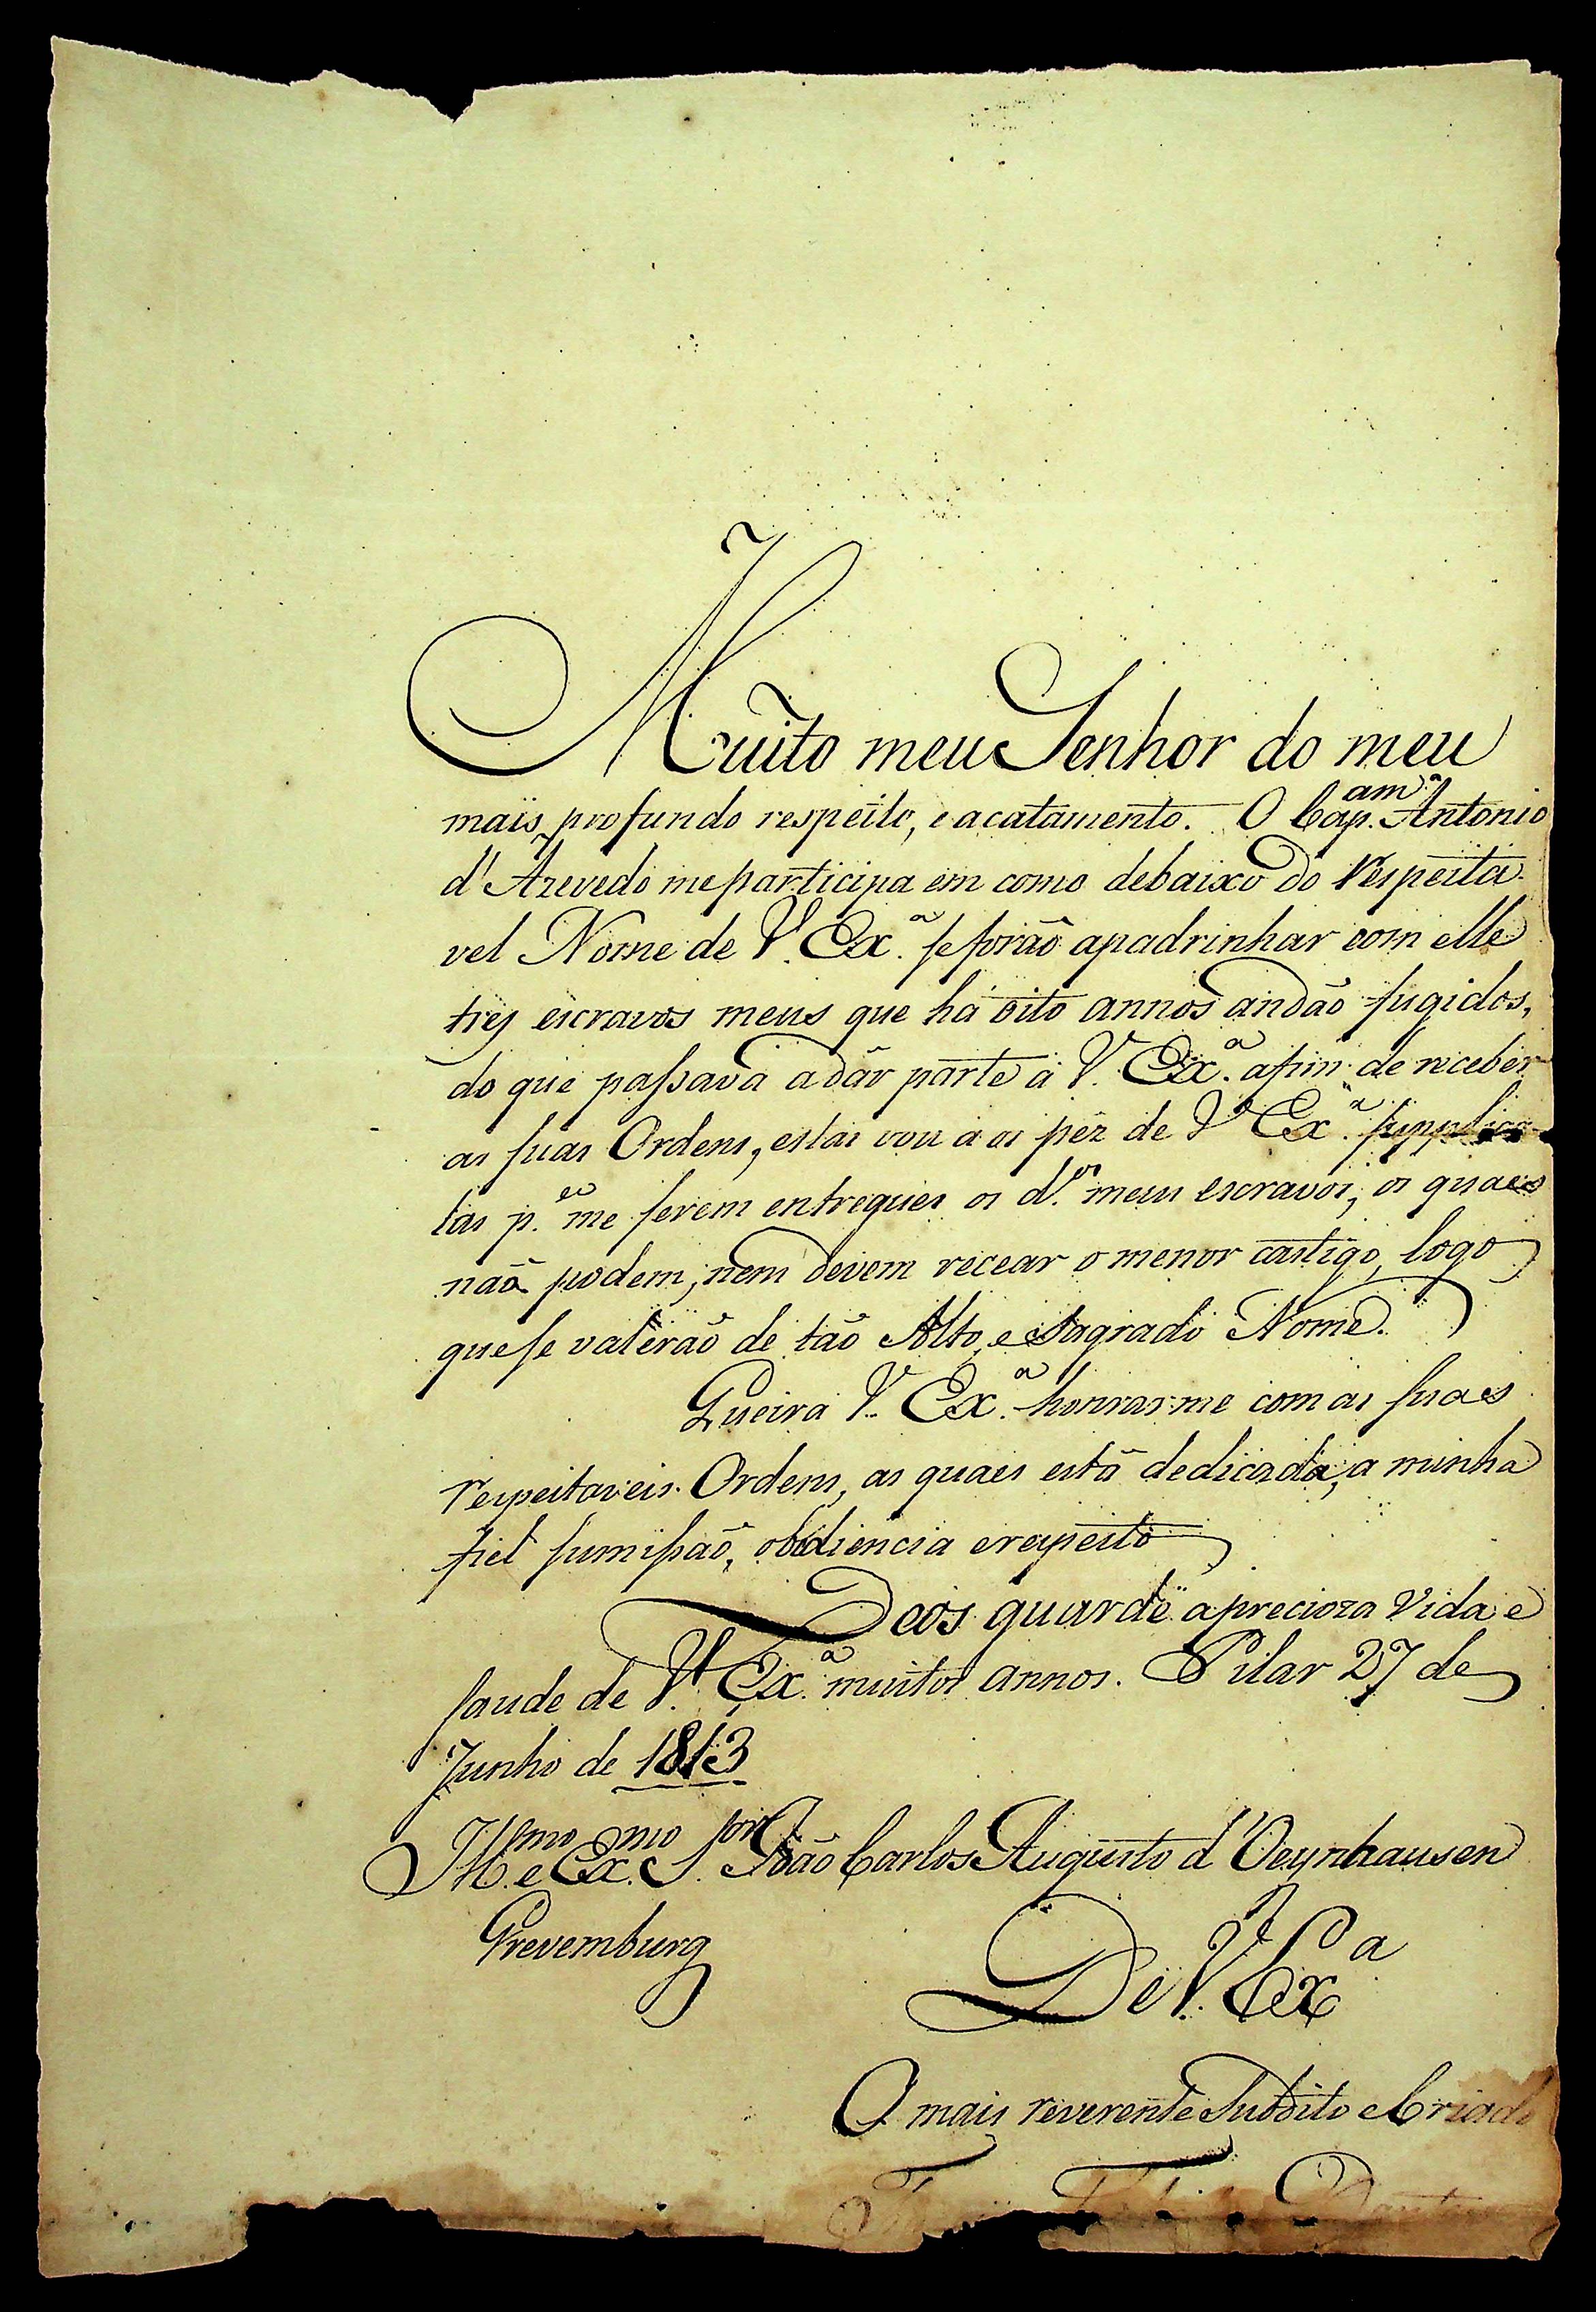 Muito meu Senhor do meu
mais profundo respeito, e acatamento. O Cap.am Antonio
d'Azevedo me participa em como debaixo do Respeita-
vel Nome de V. Ex.a se forão apadrinhar com elle
tres escravos meus que há oito annos andão fugidos,
do que passava a dár parte á V. Ex.a afim de receber
as suas Ordens, estas vou a os péz de V. Ex.a supplicar
las p.a me serem entregues os d.os meus escravos, os quaes
não podem, nem devem recear o menor castigo, logo
que se valerão de tão Alto, e Sagrado Nome.
Queira V. Ex.a honrar-me com as suas
respeitaveis Ordens, as quaes está dedicada, a minha
fiel sumissaõ, obdiencia e respeito
Deos guarde a precioza vida e
saude de V. Ex.a muitos annos. Pilar 27 de
Junho de 1813
Ill.mo e Ex.mo S.or João Carlos Augusto d'Oeynhausen
Grevemburg
De V. Exa
O mais reverente Subdito e Criado